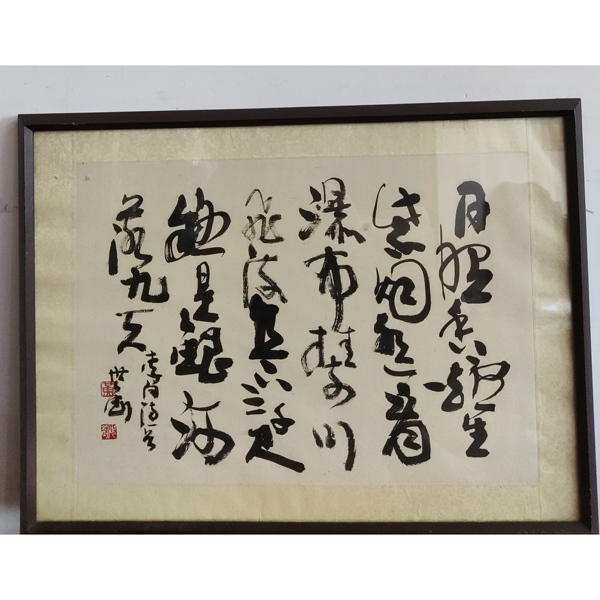 日照香炉生
紫烟遥看
瀑布挂前川
飞流直下三千尺
疑是銀河
落九天
李白诗